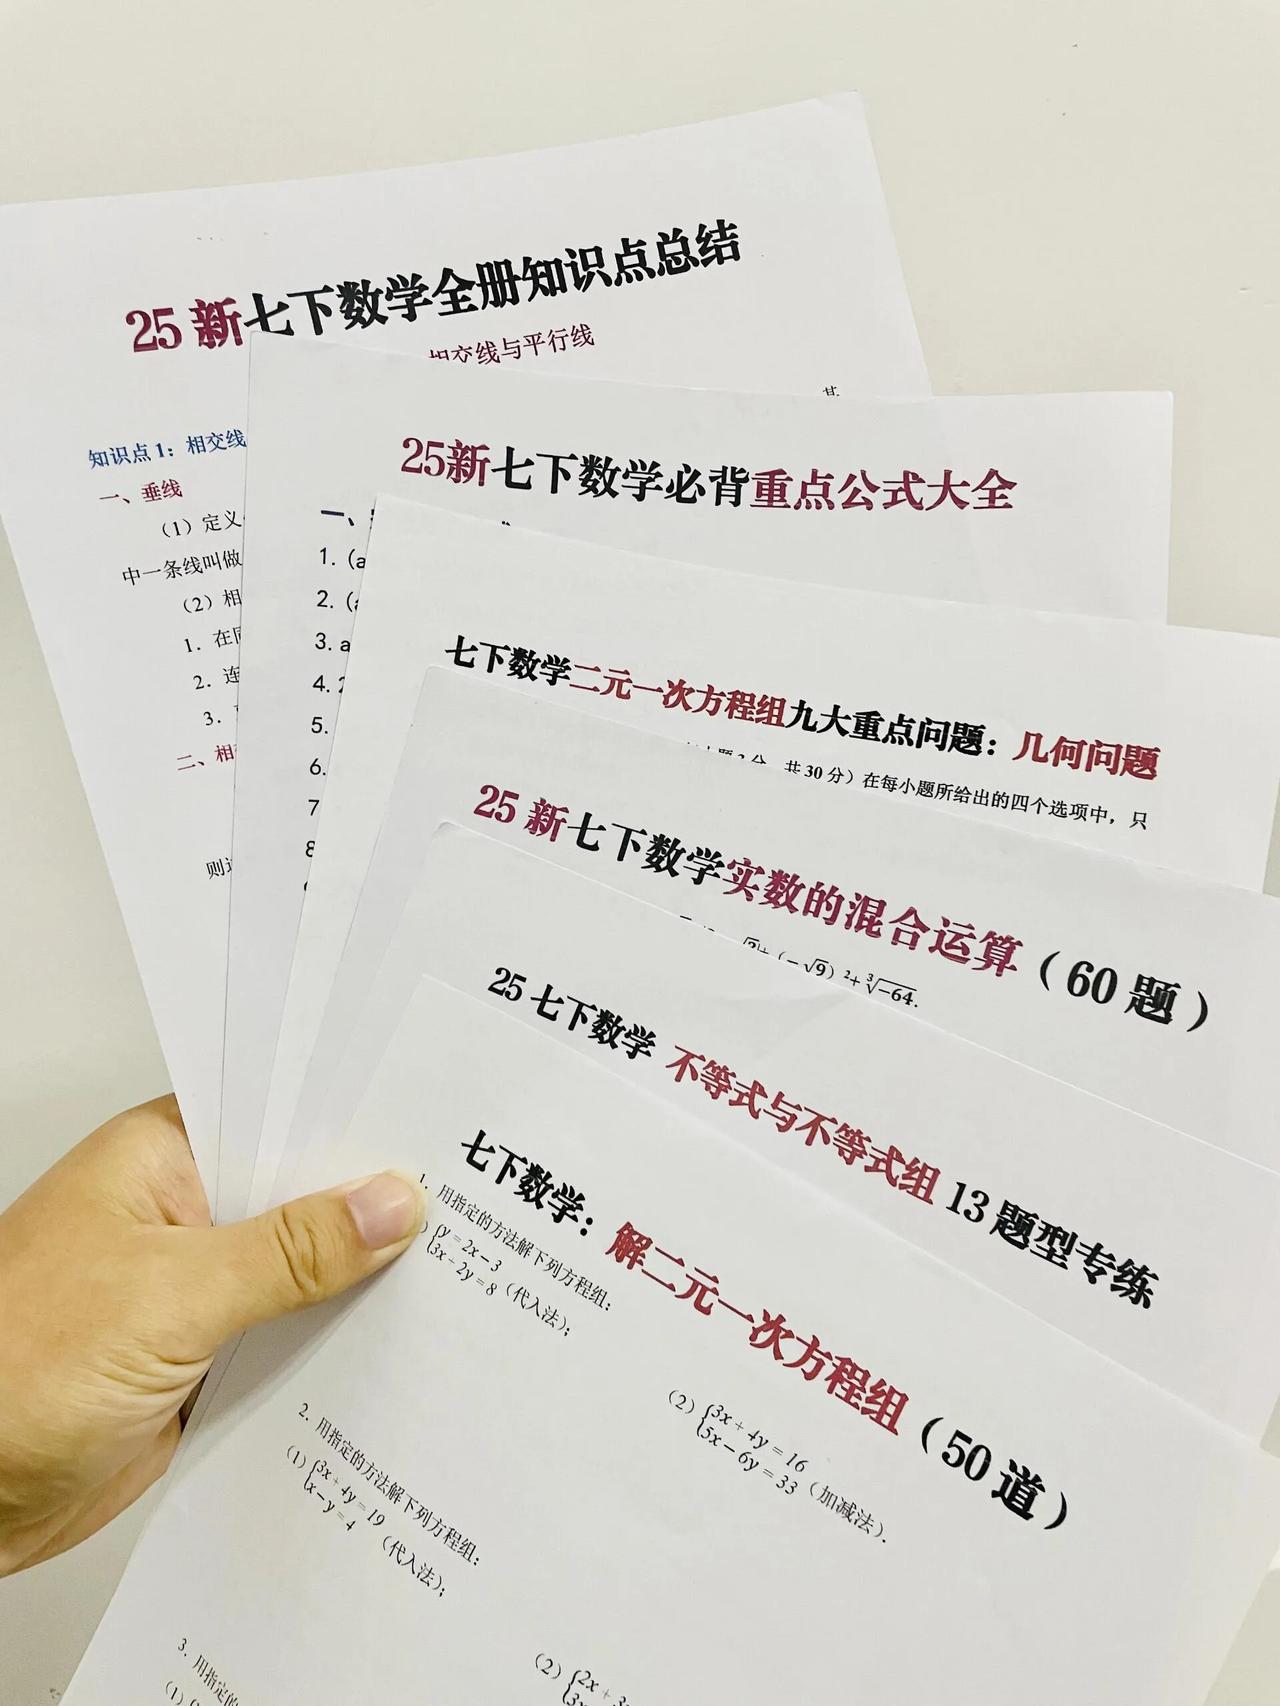 25 新七下数学全册知识点总结
相交线与平行线
其
知识点 1：相交线
一、垂线
（1）定义
中一条线叫做
（2）相
1. 在同
2. 连
3.
二、相
则这
25新七下数学必背重点公式大全
一、
1. (a
2. (a
3. a
4. 2
5.
6.
7
8
七下数学二元一次方程组九大重点问题：几何问题
分，共 30 分）在每小题所给出的四个选项中，只
25 新七下数学实数的混合运算（60 题）
(−√9) ²+ ³√−64.
25 七下数学 不等式与不等式组 13 题型专练
七下数学：解二元一次方程组（50 道）
1. 用指定的方法解下列方程组：
{y = 2x − 3
3x + 2y = 8（代入法）；
(2) {3x + 4y = 16
5x − 6y = 33（加减法）.
2. 用指定的方法解下列方程组：
(1) {3x + 4y = 19
x − y = 4（代入法）；
(2) {2x + 3
3x
3. 用指定的
(1)